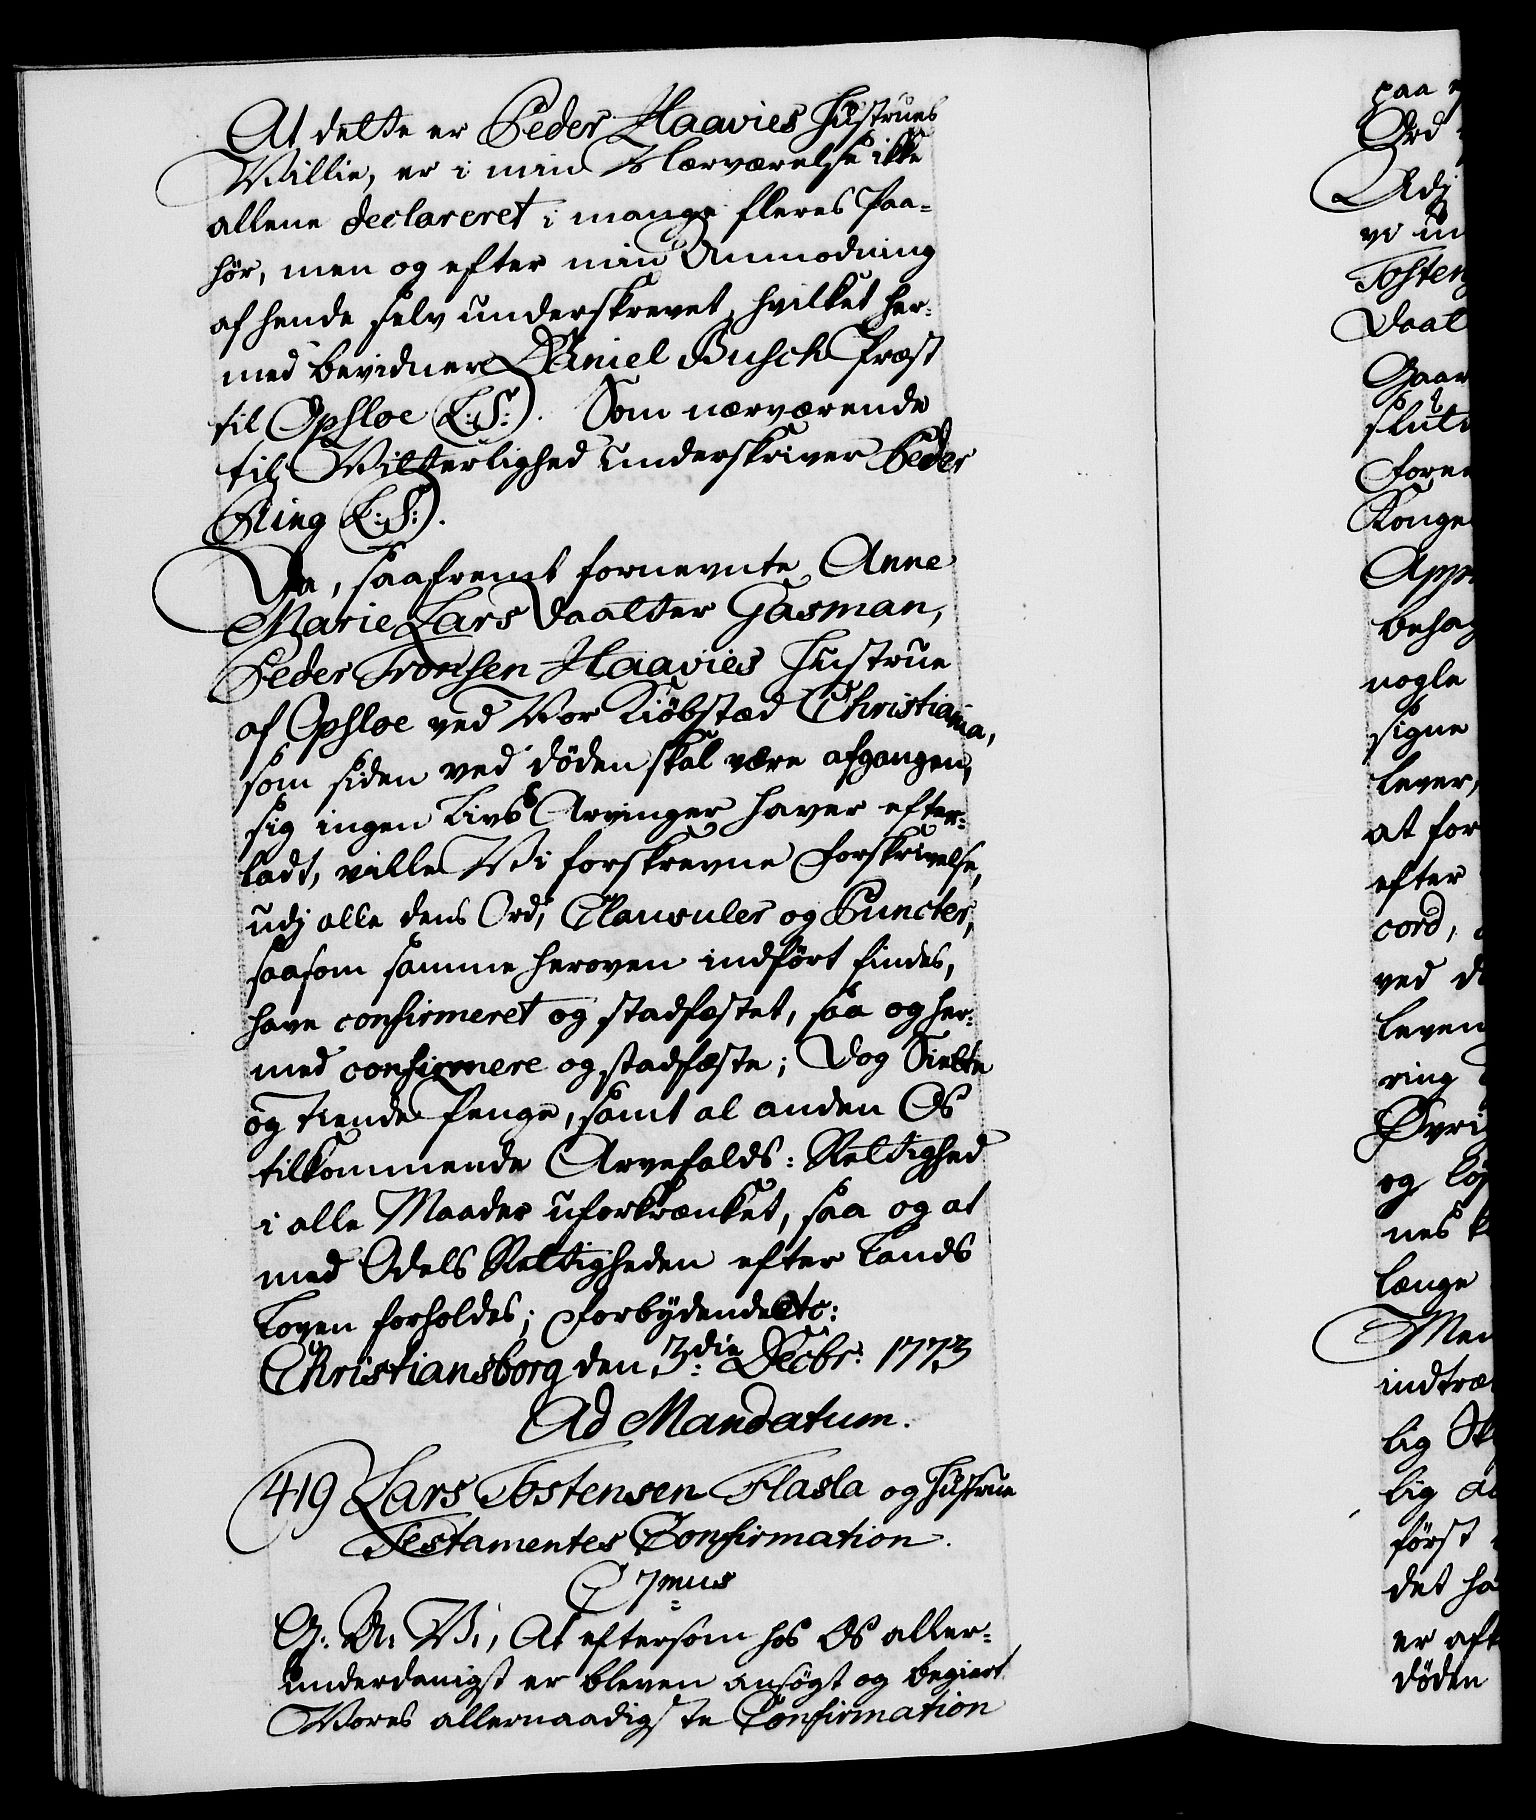 At dette er Peder Haavies Hustrues
Villie, er i min Nærværelse ikke
allene declareret i mange fleres Paa-
hør, men og efter min Anmodning
af hende selv underskrevet, hvilket her-
med bevidner Daniel Busch Præst
til Opsloe (L:S:). Som nærværende
til Vitterlighed underskriver Peder
Ring (L:S:).
Da, saafremt fornevnte Anne
Marie Lars Daatter Gasman,
Peder Haavies Hustrue
af Opsloe ved Vor Kiøbstæd Christiania,
som siden ved døden skal være afgangen,
sig ingen Livs Arvinger haver efter-
ladt, ville Vi forskrevne Forskrivelse,
udj alle dens Ord, Clausuler og Puncter,
saasom samme heroven indført findes,
have confirmeret og stadfæstet, saa og her-
med confirmere og stadfæste; Dog Siette
og Tiende Penge, samt al anden Os
tilkommende Arvefalds-Rettighed
i alle Maader uforkrænket, saa og at
med Odels Rettigheden efter Lands
Loven forholdes; Forbydende etc:
Christiansborg den 3die Decbr: 1773
Ad Mandatum.
419 Lars Tostensen Flasla og Hustrue
Testamentes Confirmation.
C 7mus
G: A: Vi, At eftersom hos Os aller-
underdanigst er bleven ansøgt og begiert
Vores allernaadigste Confirmation
paa
Ord
Adj
vi un
Tosten
Daat
Gaar
slutt
Forne
Konge
App
behag
nogle
signe
lever,
at for
efter
cord,
ved d
leven
ring
Øvri
og løs
nes k
længe
Men
indtræ
lig Sk
lig
først
det ha
er aft
døden